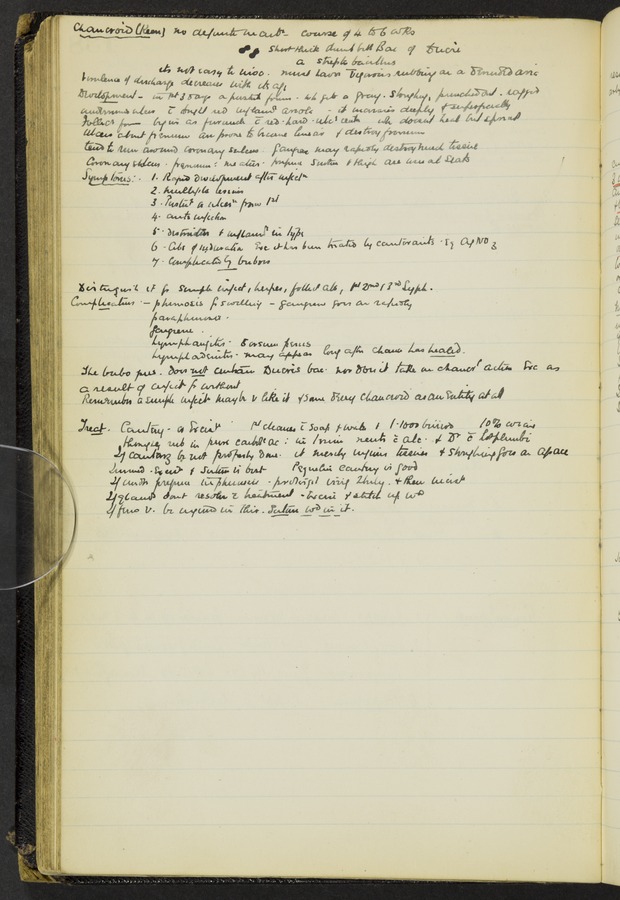 Chancroid (Keen) no definite incubn course of 4 to 6 wks
short thick dumb bell Bac of Ducre
a strepto bacillus
its not easy to inoc. must have vigorous rubbing on a denuded area
Virulence of discharge decreases with its age
Development - in 1st 3 days a pustule forms - wh gets a gray. Sloughy, punched out. ragged
undermined ulcer c̄ bright red inflamd areola - it invades deeply & superficially
Follicr form begins as furuncle c̄ red hard ulct centre wh doesnt heal but spreads
Ulcers about fraenum are prone to become linear & destroy fraenum
tend to run around coronary sulcus. Gangrene may rapidly destroy much tissue
Coronary sulcus. fraenum: meatus: prepuce Scrotum & thigh are usual seats
Symptoms: 1. Rapid Development after infectn
2. multiple lesions
3. Pustule or ulcern from 1st
4. auto infection
5. destructive & inflamd in type
6. Abs of induration Exc it has been treated by cauterants. Eg AgNO3
7. Complicated by buboes
Distinguish it fr simple infect, herpes, follct abs, 1st 2nd & 3rd Syph.
Complications - phimosis fr swelling - gangrene goes on rapidly
paraphimosis.
gangrene.
Lymphangitis. Dorsum penis
Lymphadenitis. may appear long after chancr has healed.
The bubo pus. does not contain Ducreis bac. nor does it take on chancrs action Exc as
a result of infect fr without
Remember a simple infect may be v like it & some deny chancroid as an Entity at all
Treat. Cautery - or Excise 1st cleanse c̄ soap & water & 1-1000 biniod 10% cocaine
then rub in pure carbolic ac: in 1 min neutr c̄ alc. & Dr c̄ Lot plumbi
If cautery be not properly done. it merely injures tissues & sloughing goes on apace
Excis & suture is best Paquelin cautery is good
If under prepuce & then incise
If glands dont resolve c̄ treatment - Excise & stitch up wd
If fem v. be injured in this. Suture wd in it.